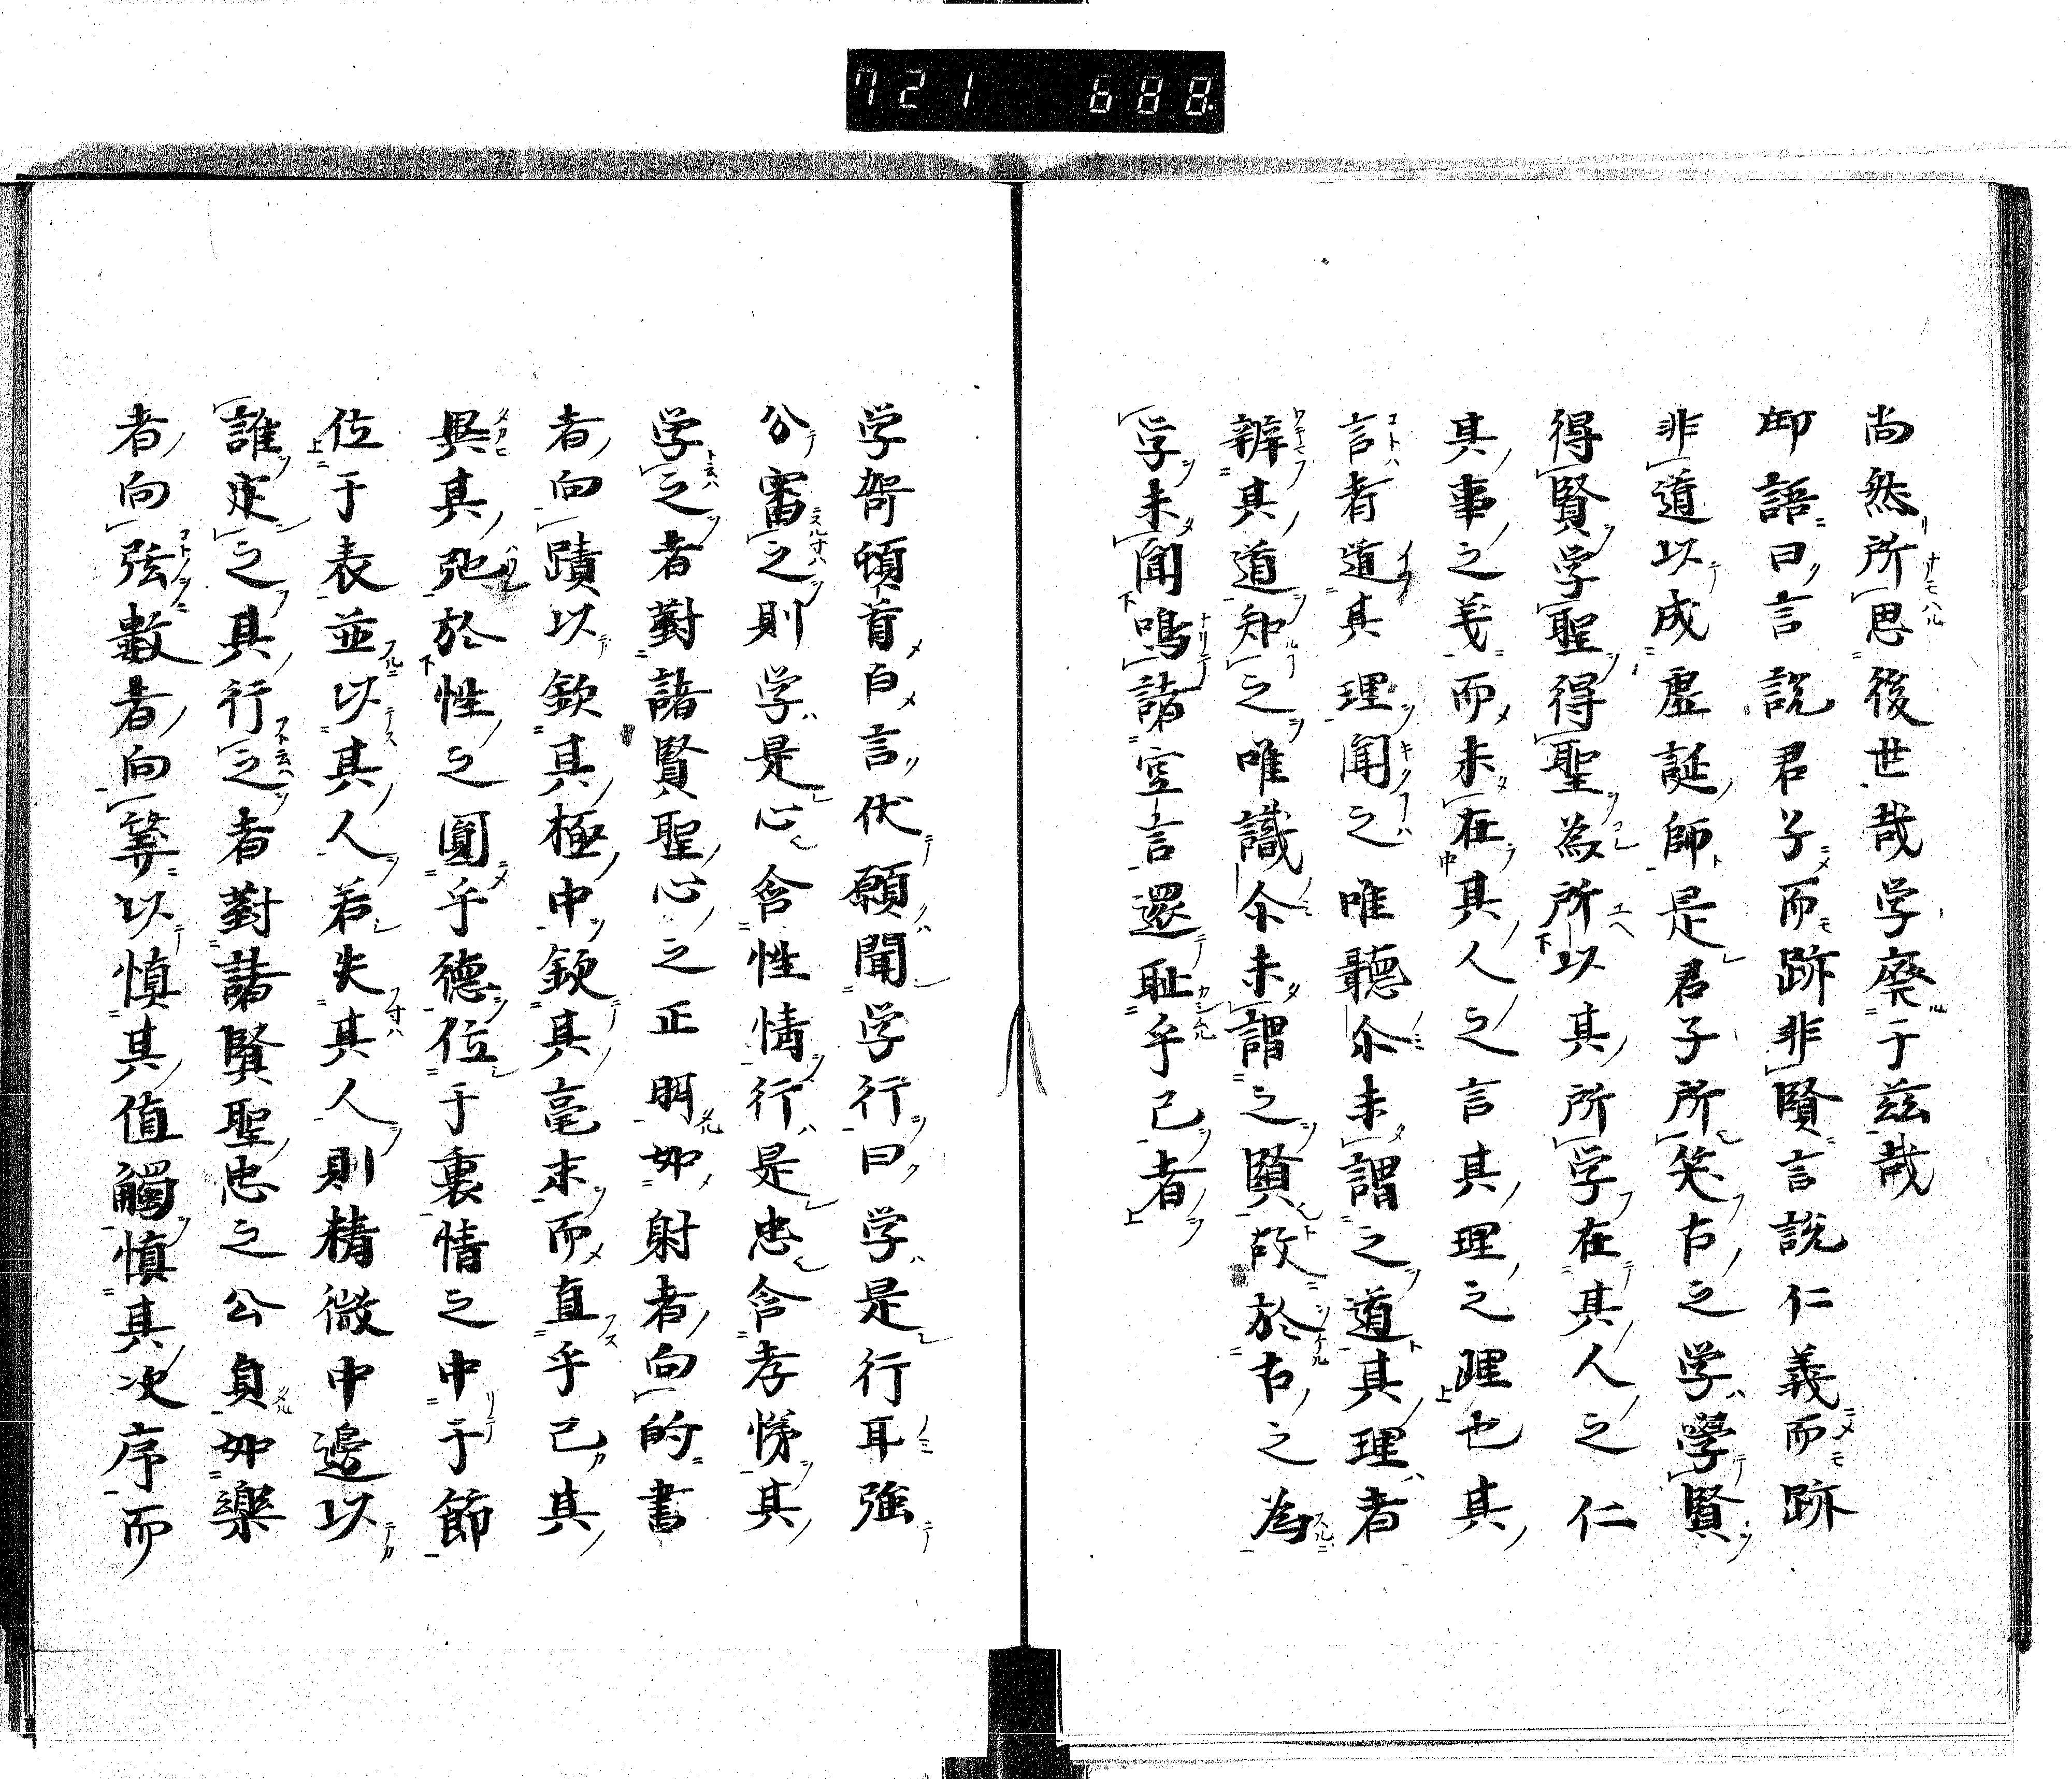 721 688
尚然所思後世哉学廃于茲哉
御語曰言説君子而跡非賢言説仁義而跡
非道以成虚誕師是君子所笑古之学學賢
得賢学聖得聖為所以其所学在其人之仁
其事之義而未在其人之言其理之理也其
言者道其理聞之唯聽尒未謂之道其理者
辨其道知之唯識尒未謂之賢故於古之為
学未聞鳴諸空言還恥乎己者
学哿頓首白言伏願聞学行曰学是行耳強
分審之則学是心含性情行是忠含孝悌其
学之者對諸賢聖心之正明如射者向的書
者向蹟以欽其極中欽其毫末而直乎己其
其於性之圓乎德位于裏情之中于節
位于表並以其人若失其人則精微中邊以
誰定之其行之者對諸賢聖忠之公貞如樂
者向弦數者向筭以慎其值觸慎其次序而